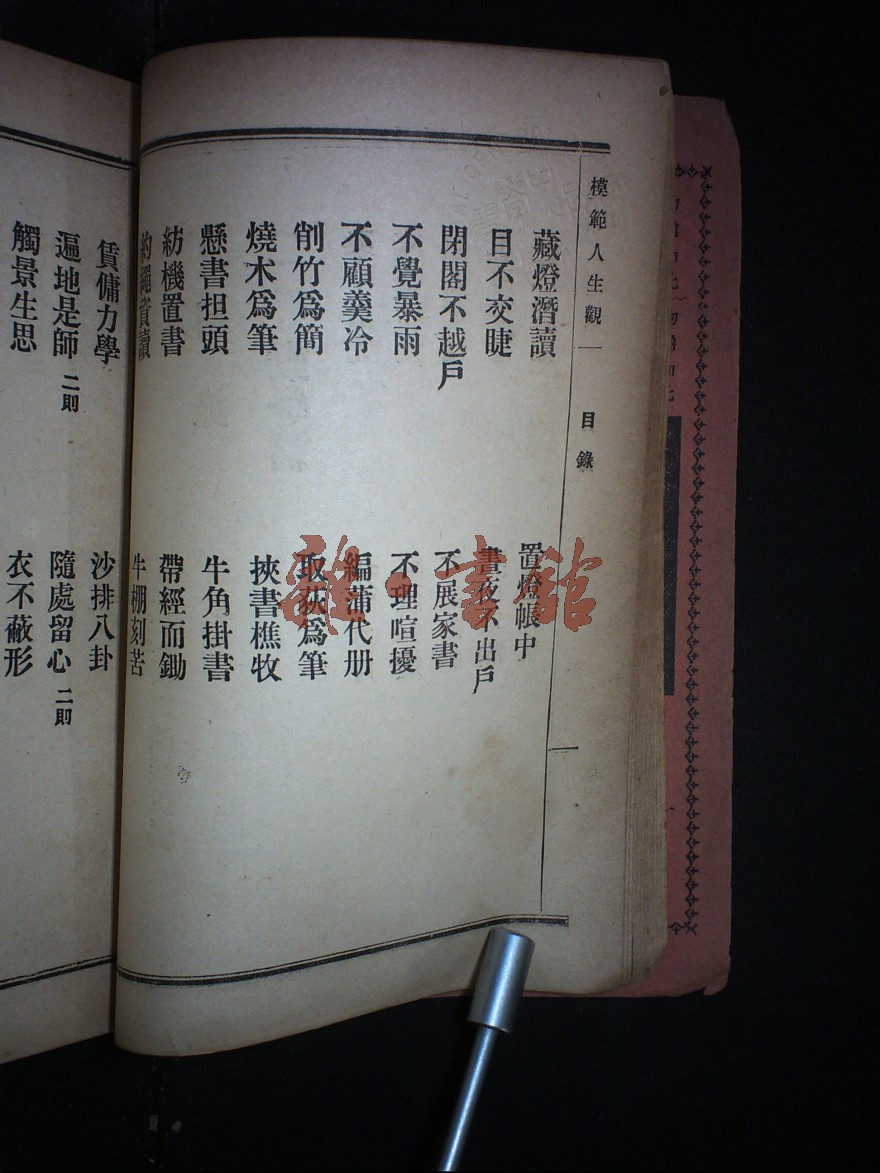 模範人生觀
目錄
一
藏燈潛讀
置燈帳中
目不交睫
晝夜不出戶
閉閣不越戶
不展家書
不覺暴雨
不理喧擾
不顧羹冷
編蒲代册
削竹爲簡
取荻爲筆
燒木爲筆
挾書樵牧
懸書担頭
牛角掛書
紡機置書
帶經而鋤
約繩資讀
牛棚刻苦
賃傭力學
沙排八卦
遍地是師 二則
隨處留心 二則
觸景生思
衣不蔽形
雜·書館